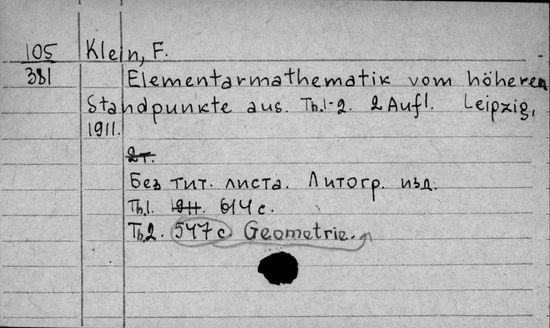 105 Klein, F.
331 Elementarmathematik vom höheren
Standpunkte aus. Th.1-2. 2 Aufl. Leipzig,
1911.
2т.
Без тит. листа. Литогр. изд.
Th.1. 1911. 614 с.
Th.2. 547 с Geometrie.